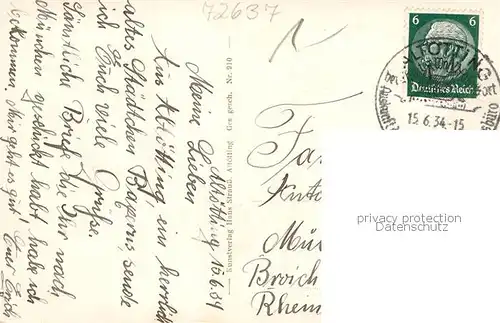 72637
Altötting 15.6.34
Meine
Lieben
Aus Altötting ein herrlich
altes Städtchen Bayerns, sende
ich Euch viele Grüße.
Sämtliche Briefe die Ihr nach
München geschickt habt habe ich
bekommen. Mir geht es gut! Euer Erich
Kunstverlag Hans Strauß, Altötting Ges. gesch. Nr. 910
6 6
Deutsches Reich
ALTÖTTING
15.6.34.-15
Fa
Münch
Broich
Rhein
privacy protection
Datenschutz